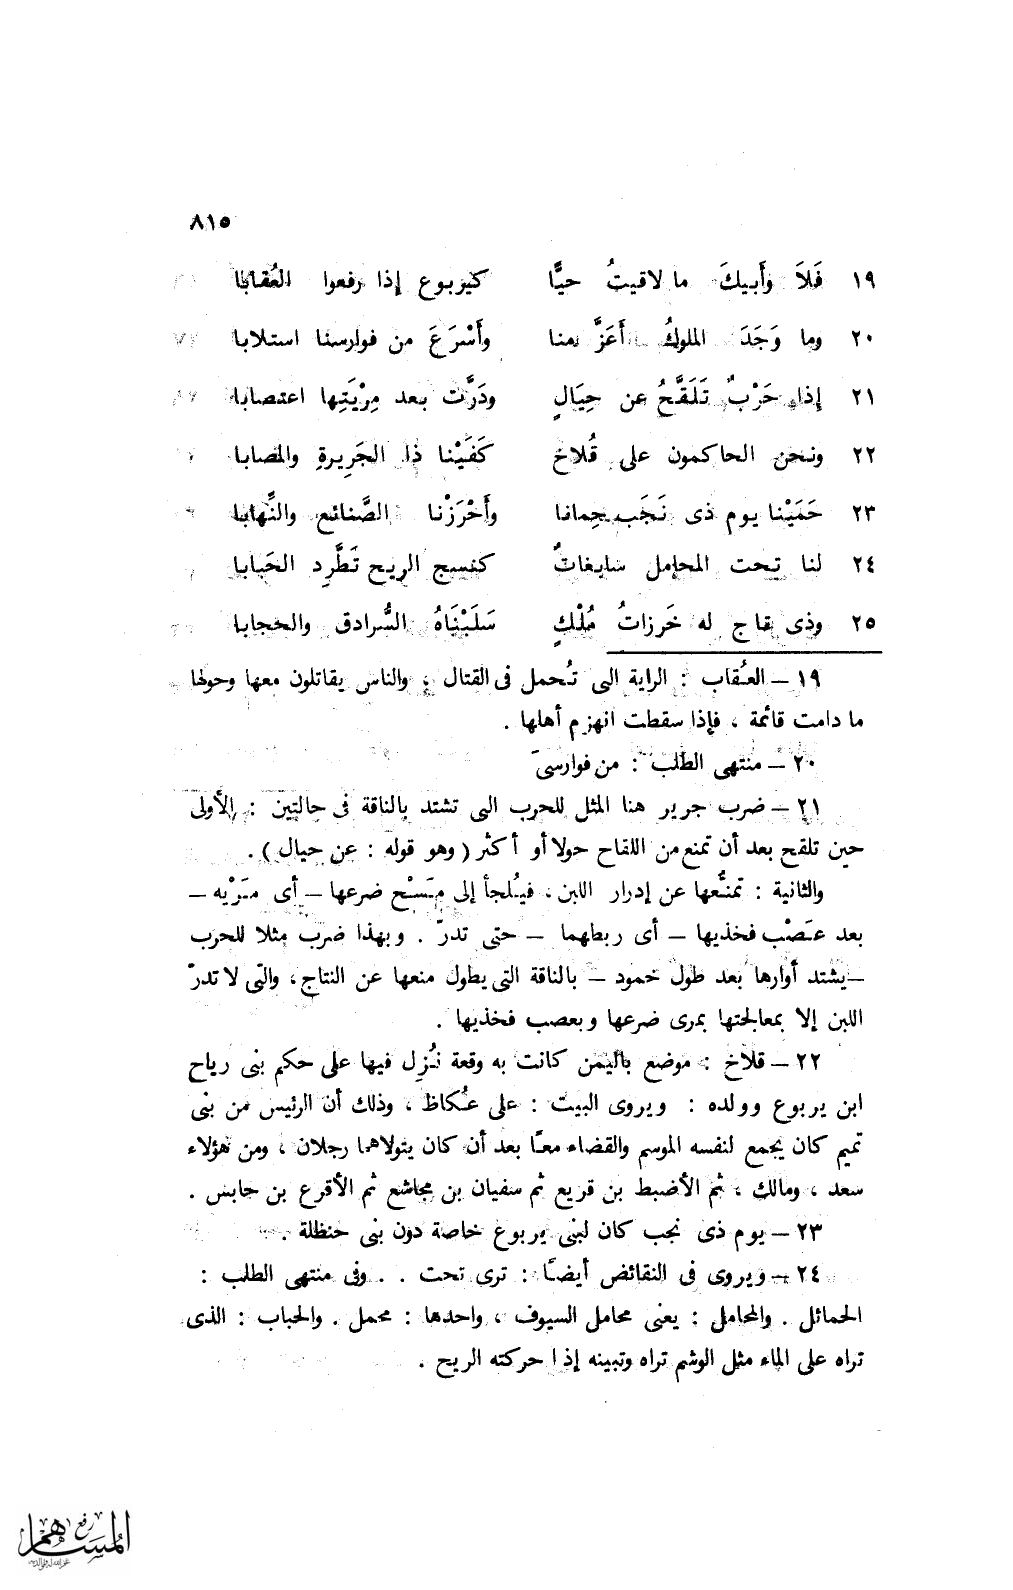 ٨١٥
١٩ فَلاَ وَأَبيكَ ما لاقيتُ حيًّا كيربوع إذا رفعوا العُقابا
٢٠ وما وَجَدَ الملوكُ أَعَزَّ منا وأَسْرَعَ من فوارسنا استلابا
٢١ إذا حَرْبٌ تَلَقَّحُ عن حِيَالٍ ودَرَّت بعد مِرْيَتِها اعتصابا
٢٢ ونحن الحاكمون على قُلاخ كَفَيْنا ذا الجَرِيرةِ والمصابا
٢٣ حَمَيْنا يوم ذى نَجَب حِمانا وأَحْرَزْنا الصَّنائع والنِّهابا
٢٤ لنا تحت المحامل سابغاتٌ كنسج الريح تَطَّرِد الحَبابا
٢٥ وذى تاج له خَرزاتُ مُلْكٍ سَلَبْنَاهُ السُّرادق والحجابا
١٩ – العُقاب : الراية التى تُحمل فى القتال ، والناس يقاتلون معها وحولها
ما دامت قائمة ، فإذا سقطت انهزم أهلها .
٢٠ – منتهى الطلب : من فوارسىَ
٢١ – ضرب جرير هنا المثل للحرب التى تشتد بالناقة فى حالتين : الأولى
حين تلقح بعد أن تمنع من اللقاح حولا أو أكثر ( وهو قوله : عن حيال ) .
والثانية : تمنُّعها عن إدرار اللبن ، فيُلجأ إلى مَسْح ضرعها – أى مَرْيه –
بعد عَصْب فخذيها – أى ربطهما – حتى تدرّ . وبهذا ضرب مثلا للحرب
– يشتد أوارها بعد طول خمود – بالناقة التى يطول منعها عن النتاج ، والتى لا تدرّ
اللبن إلا بمعالجتها بمرى ضرعها وبعصب فخذيها .
٢٢ – قلاخ : موضع باليمن كانت به وقعة نُزِل فيها على حكم بنى رياح
ابن يربوع وولده : ويروى البيت : على عُكاظ ، وذلك أن الرئيس من بنى
تميم كان يجمع لنفسه الموسم والقضاء معًا بعد أن كان يتولاهما رجلان ، ومن هؤلاء
سعد ، ومالك ، ثم الأضبط بن قريع ثم سفيان بن مجاشع ثم الأقرع بن حابس .
٢٣ – يوم ذى نجب كان لبنى يربوع خاصة دون بنى حنظلة .
٢٤ – ويروى فى النقائض أيضًا : ترى تحت . . وفى منتهى الطلب :
الحمائل . والمحامل : يعنى محامل السيوف ، واحدها : محمل . والحباب : الذى
تراه على الماء مثل الوشم تراه وتبينه إذا حركته الريح .